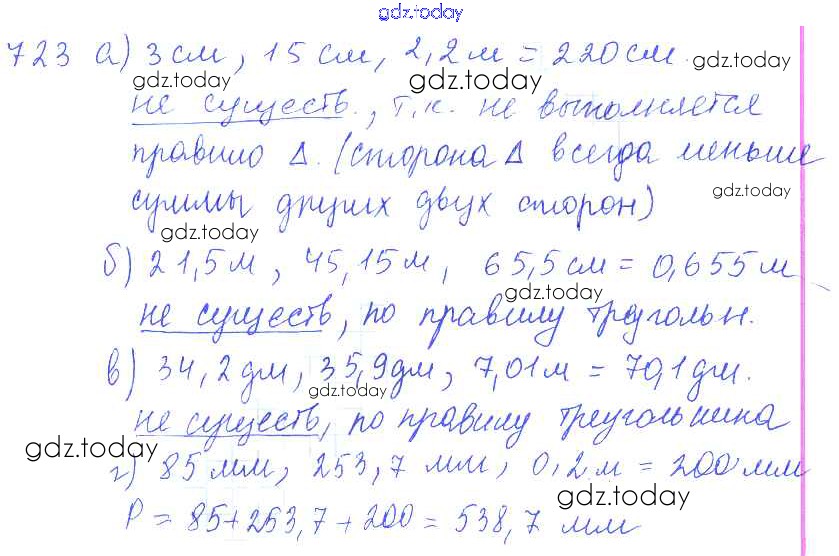 gdz.today
723 а) 3 см, 15 см, 2,2 м = 220 см.
gdz.today gdz.today gdz.today
не существ., т.к. не выполняется
правило Δ. (сторона Δ всегда меньше
gdz.today
суммы других двух сторон)
gdz.today
б) 21,5 м, 45,15 м, 65,5 см = 0,655 м
gdz.today
не существ, по правилу треугольн.
в) 34,2 дм, 35,9 дм, 7,01 м = 70,1 дм.
gdz.today
не существ, по правилу треугольника
gdz.today
г) 85 мм, 253,7 мм, 0,2 м = 200 мм
gdz.today
P = 85+253,7+200 = 538,7 мм
gdz.today